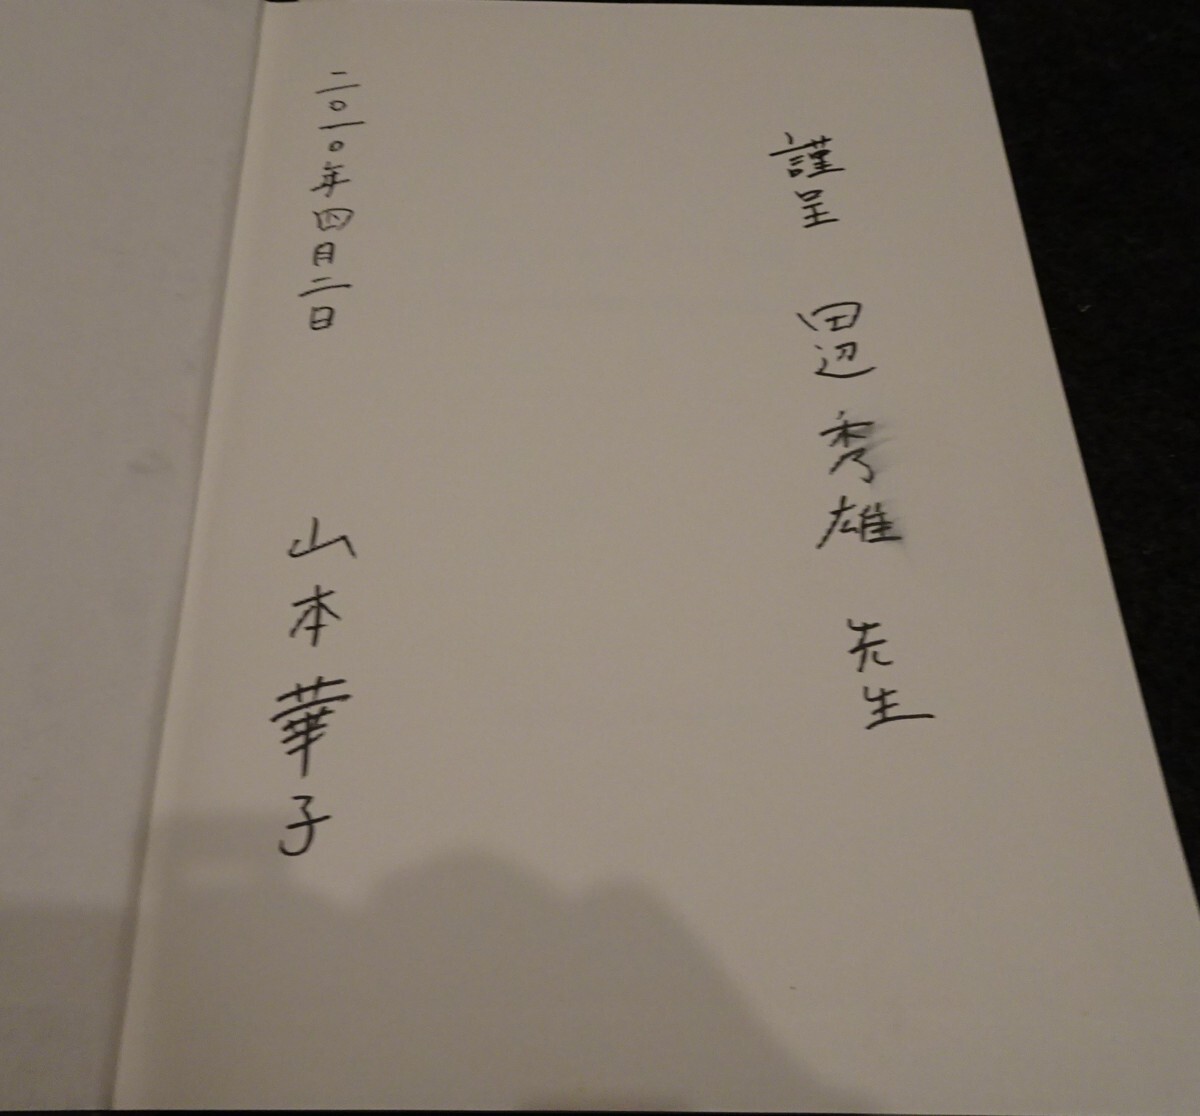 謹呈 田辺秀雄 先生
二〇一〇年四月二日
山本華子